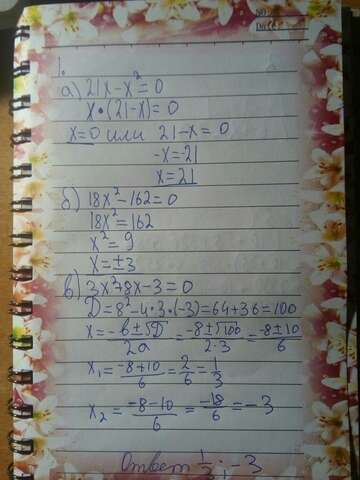 1.
а) 21x-x²=0
x•(21-x)=0
x=0 или 21-x=0
-x=21
x=21
б) 18x²-162=0
18x²=162
x²=9
x=±3
в) 3x²+8x-3=0
D=8²-4•3•(-3)=64+36=100
x=-b±√D/2a=-8±√100/2•3=-8±10/6
x₁=-8+10/6=2/6=1/3
x₂=-8-10/6=-18/6=-3
Ответ 1/3; -3